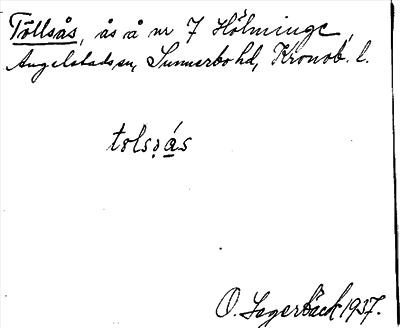 Tollsås, ås å nr 7 Hölminge,
Angelstads sn, Sunnerbo hd, Kronob. l.
tolsǫás
O. Lagerbäck 1937.